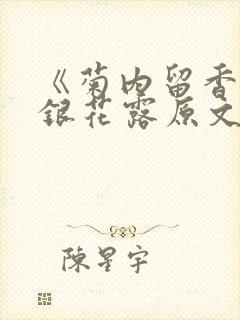 《菊内留香
銀花露原文
陳星宇